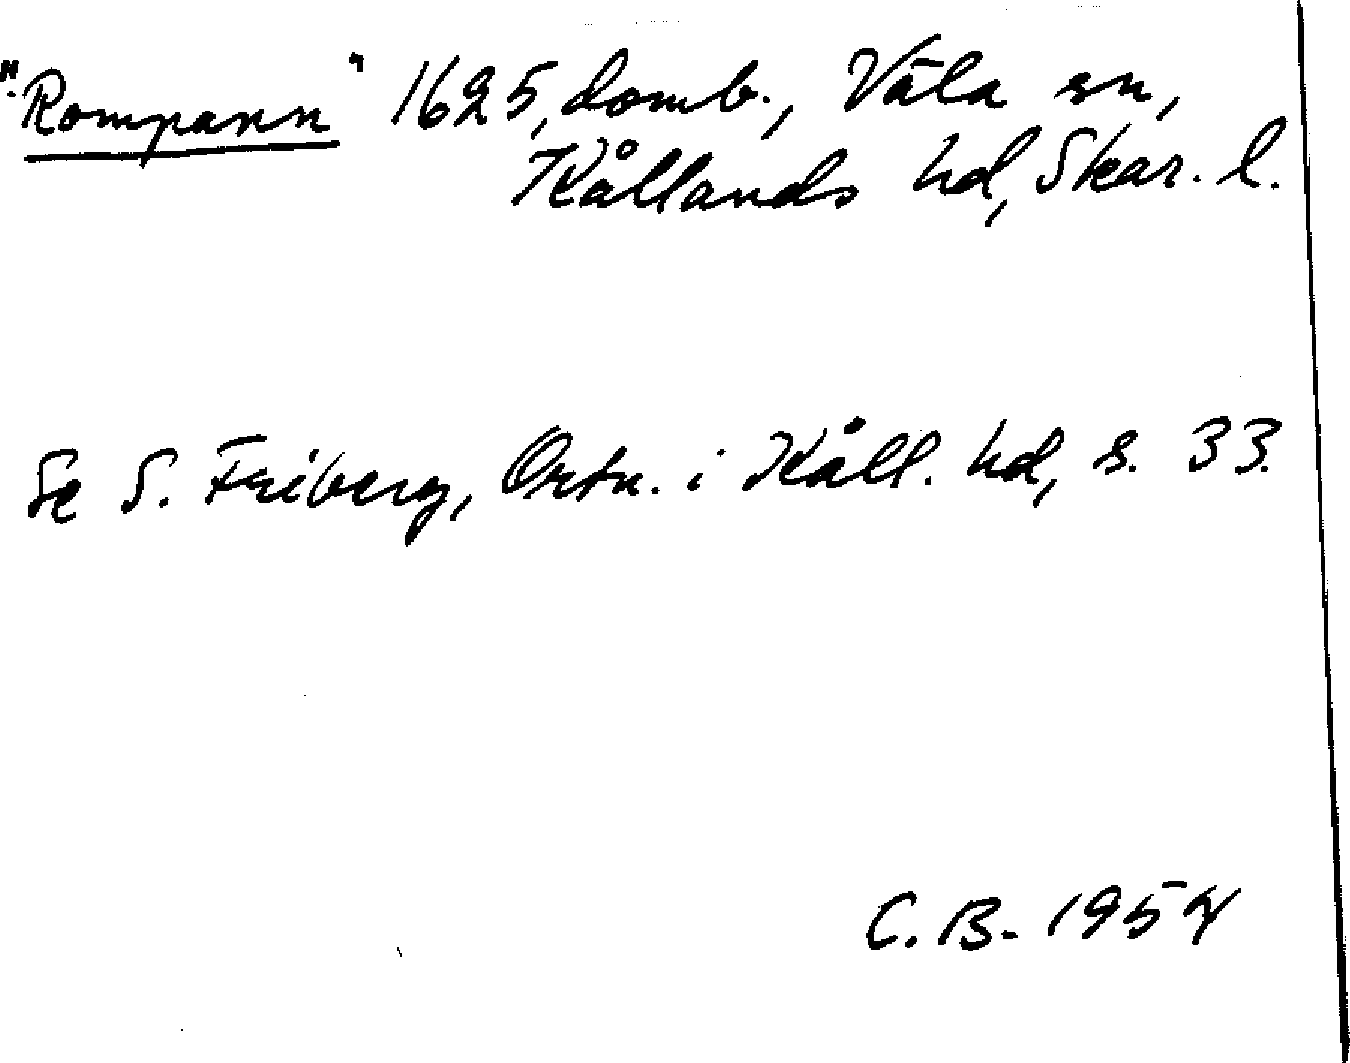 "Rompann" 1625, domb., Väla sn,
Kållands hd, Skar. l.
Se S. Friberg, Ortn. i Kåll. hd, s. 33.
C. B. 1954